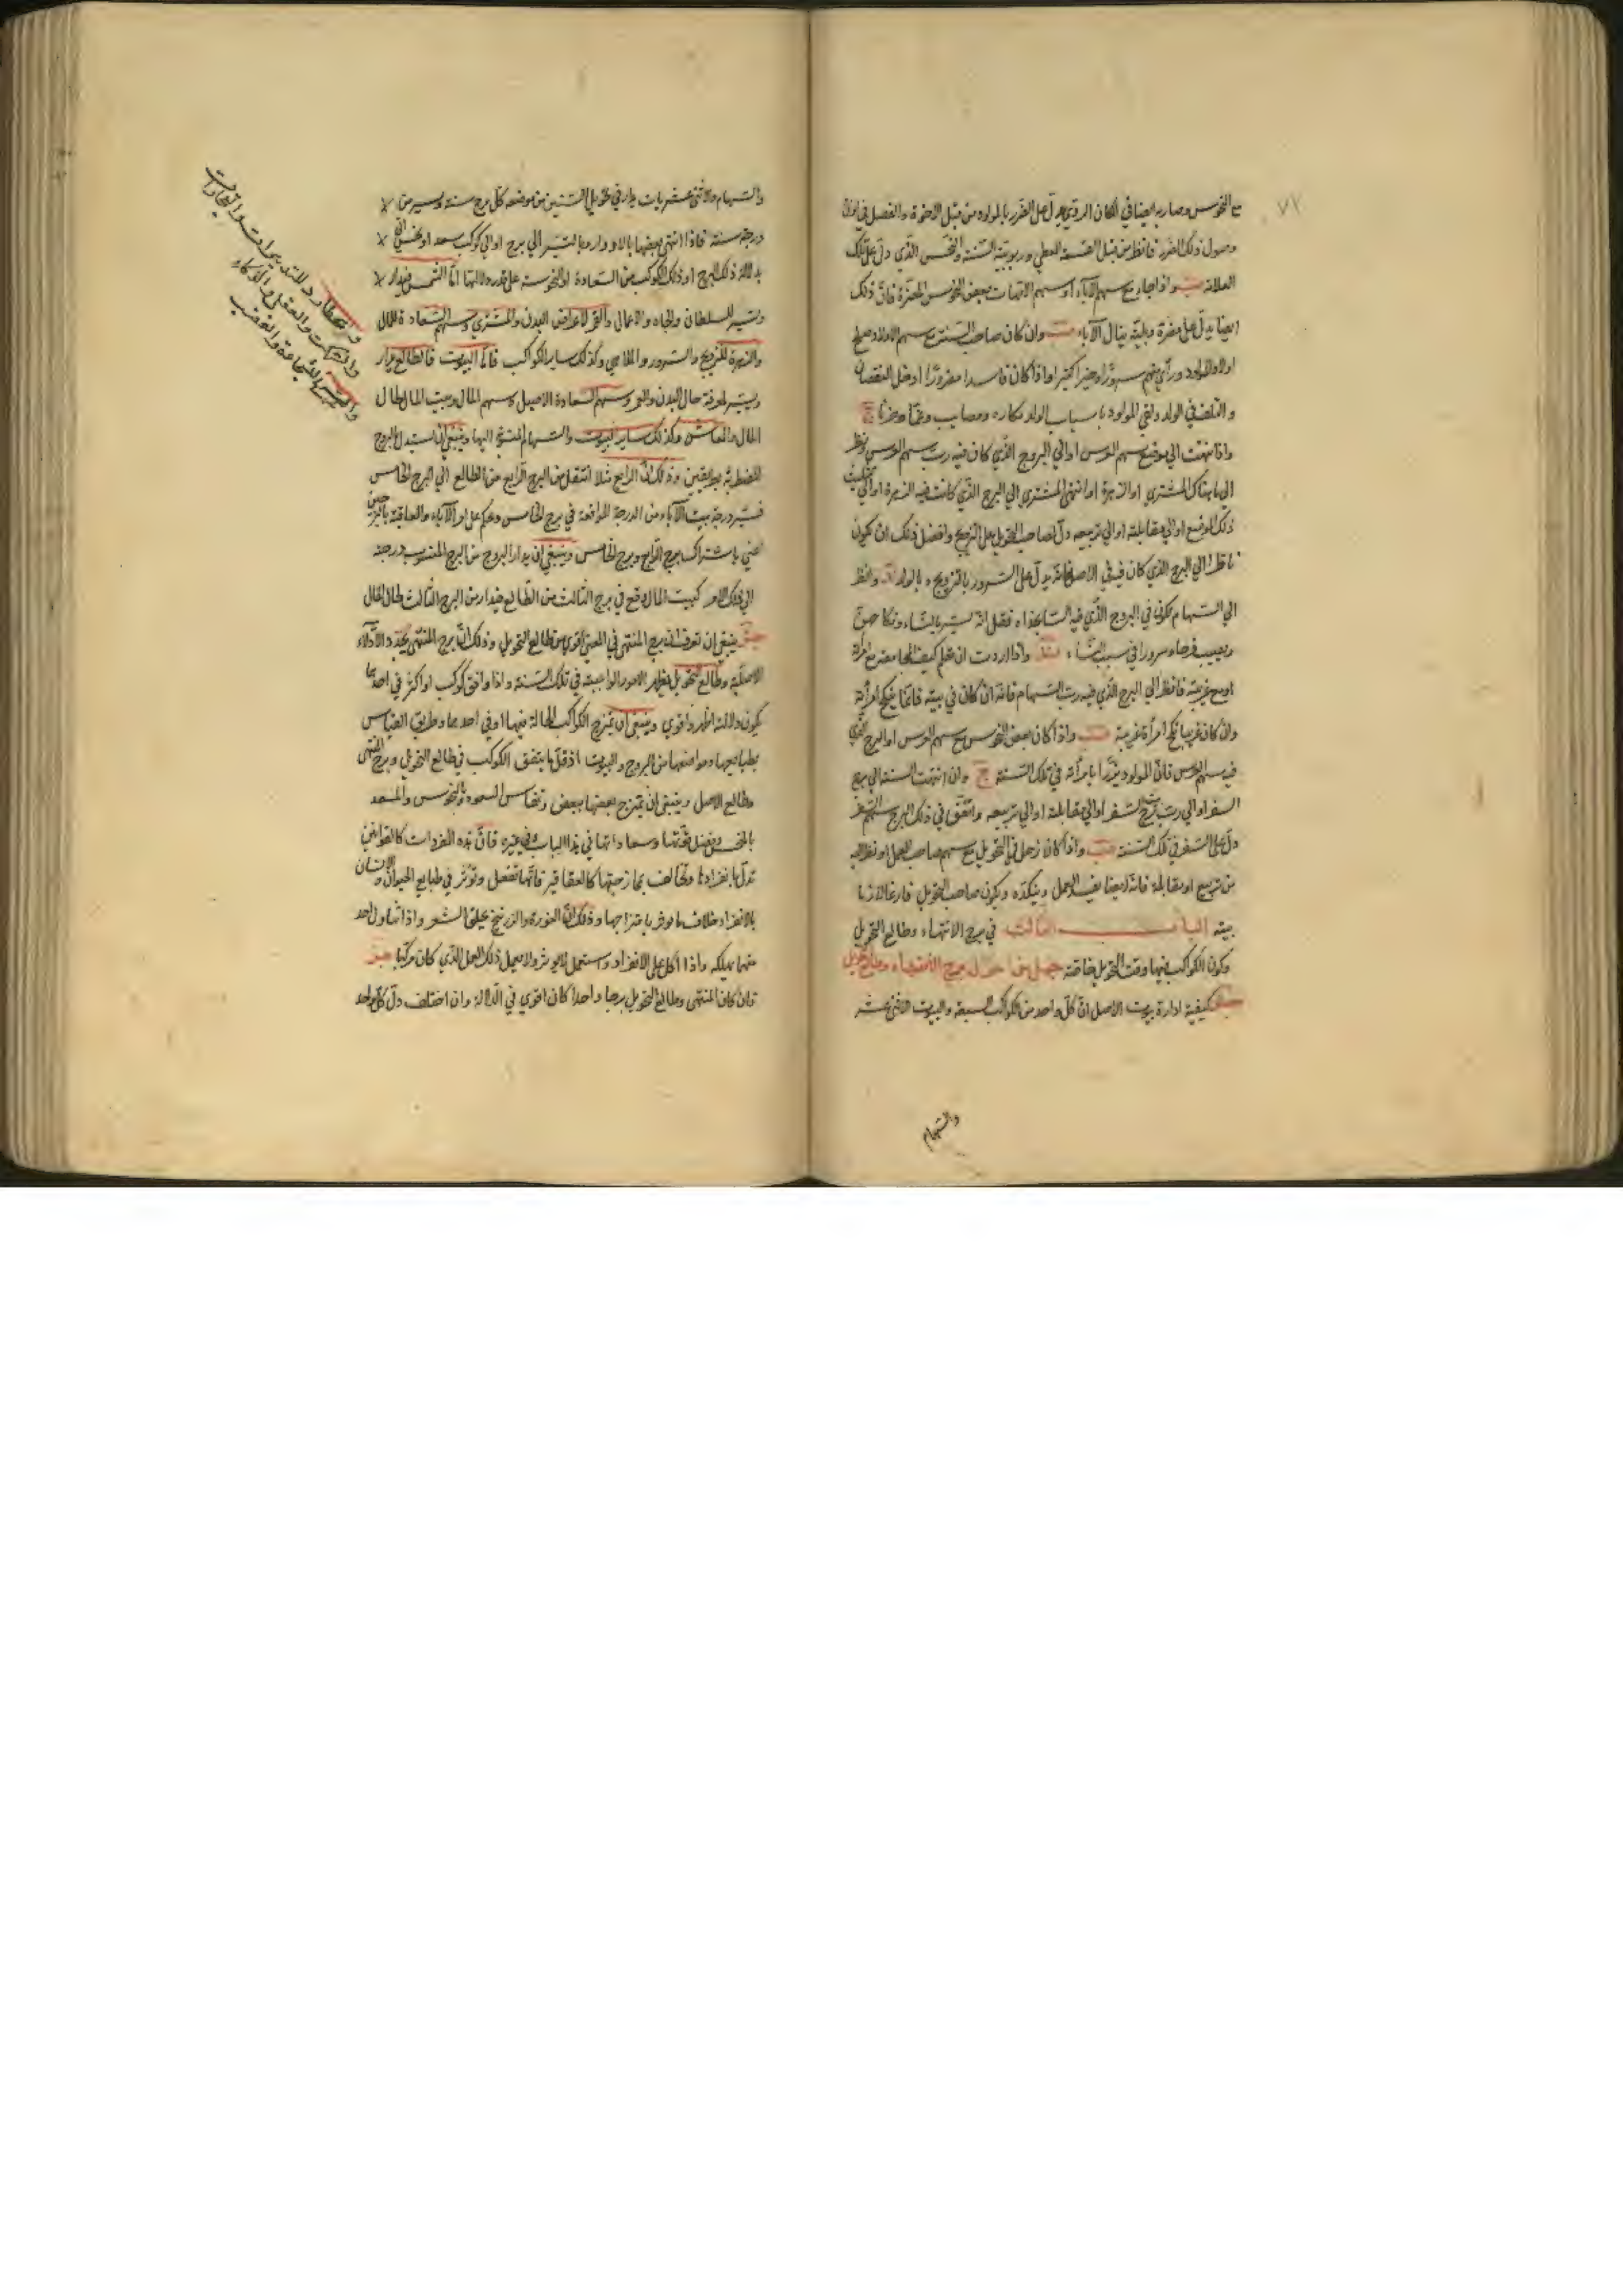 ٧٧
مع النحوس وصار به ايضا في المكان الردي يدل على الضرر بالمولود من قبل الاخوة والفصل في
وصول ذلك الضرر فانظر من قبل القسمة العظمى وربوبية السنة والنحس الذي دل على تلك
العلانه واذا جامع سهم الآباء او سهم الامهات بعض النحوس المضرة فان ذلك
ايضا يدل على مضرة وبلية ينال الآباء وان كان صاحب السنة مع سهم الاولاد صلح
اولاد المولود ورأى منهم سرورا وخيرا كثيرا واذا كان فاسدا مضرورا ادخل النقصان
والتلف في الولد ولقي المولود باسباب الولد مكاره ومصايب وغما وحزنا
واذا انتهت الى موضع سهم العرس او الى البروج الذي كان فيه رب سهم العرس ونظر
الى ما هناك المشتري او الزهرة او انتهى المشتري الى البرج الذي كانت فيه الزهرة او الى تثليث
ذلك الموضع او الى مقابلته او الى تربيعه دل لصاحب التحويل على التزويج وافضل ذلك ان يكون
ناظرا الى البرج الذي كان فيه في الاصل فانه يدل على السرور بالتزويج وبالولد وانظر
الى السهام يكون في البروج الذي فيه الساعة فقل انه يسر بالنساء ونكاحهن
ويصيب فرحا وسرورا في سبب النساء واذا اردت ان تعلم كيف المجامعة مع امرأة
او مع غريبة فانظر الى البرج الذي فيه رب السهام فانه ان كان في بيته فانما ينكح امرأته
وان كان غريبا نكح امرأة غريبة واذا كان بعض النحوس مع سهم العرس او البرج الذي
فيه سهم العرس فان المولود يؤزأ بامرأته في تلك السنة وان انتهت السنة الى برج
السفر او الى رب برج السفر او الى مقابلته او الى تربيعه واتفق في ذلك البرج سهم السفر
دل على السفر في تلك السنة واذا كان زحل في التحويل مع سهم صاحب العمل او نظر اليه
من تربيع او مقابلة فانه ايضا يفسد العمل وينكده ويكون صاحب التحويل فارغا لازما
بيته الباب الثالث في برج الانتهاء وطالع التحويل
وكون الكواكب فيها وقت التحويل خاصة
كيفية ادارة بيوت الاصل ان كل واحد من الكواكب السبعة والبيوت الاثنى عشر
والسهام
والسهام والاثنى عشريات يدار في تحويل السنين من موضعه كل برج سنة ويسير من
درجة سنة فاذا انتهى بعضها بالادوار وبالتسيير الى برج او الى كوكب سعد او نحس
بدلالة ذلك البرج او ذلك الكوكب من السعادة او النحوسة على قدر دلالتها اما الشمس فيدار
ويسير للسلطان والجاه والاعمال والقمر لاعراض البدن والمشتري وسهم السعادة للمال
والزهرة للتزويج والسرور والملاهي وكذلك ساير الكواكب فاما البيوت فالطالع يدار
ويسير لمعرفة حال البدن والعمر وسهم السعادة الاصيل وسهم المال وبيت المال لحال
المال والمعاش وكذلك ساير البيوت والسهام المنسوخ اليها وينبغي ان يستدل على البروج
المضطربة بطريقين وذلك ان الرابع مثلا انتقل من البرج الرابع من الطالع الى البرج الخامس
فسير درجة بيت الآباء من الدرجة الواقعة في برج الخامس وحكم على امر الآباء والعاقبة بالبرجين
اعني باشتراك برج الرابع وبرج الخامس وينبغي ان يدار البروج من البرج المنسوب درجته
الى ذلك الامر كبيت المال وقع في برج الثالث من الطالع فيدار من البرج الثالث لحال المال
ينبغي ان تعرف ان برج المنتهى في المعنى اقوى من طالع التحويل وذلك ان برج المنتهى يجدد الادلاء
الاصلية وطالع التحويل يظهر الامور الواجبة في تلك السنة واذا وافق كوكب او اكثر في احدهما
يكون دلالته اظهر واقوى وينبغي ان يمتزج الكواكب الحالة فيهما او في احدهما وطريق القياس
بطبايعها ومواضعها من البروج والبيوت اذ قل ما يتفق الكوكب في طالع التحويل وبرج المنتهى
وطالع الاصل وينبغي ان يمتزج بعضها ببعض وتقاس السعود بالنحوس والمسعد
بالنحس ويفصل نحوستها وسعاداتها في هذا الباب وفي غيره فان هذه المفردات كالقوانين
تدل بانفرادها وتخالف بممازجتها كالعقاقير فانها تفعل وتؤثر في طبايع الحيوان والانسان
بالانفراد خلاف ما يؤثر بامتزاجها وذلك ان النورة والزرنيخ يحلق الشعر واذا تناول احد
منهما يهلكه واذا اكل على الانفراد واستعمل لا يؤثر ولا يعمل ذلك العمل الذي كان مركبا
فان كان المنتهى وطالع التحويل برجا واحدا كان اقوى في الدلالة وان اختلف دل كل واحد
وعطارد للتدبيرات والتجارات
والعقل والذكاء
والشجاعة والغضب